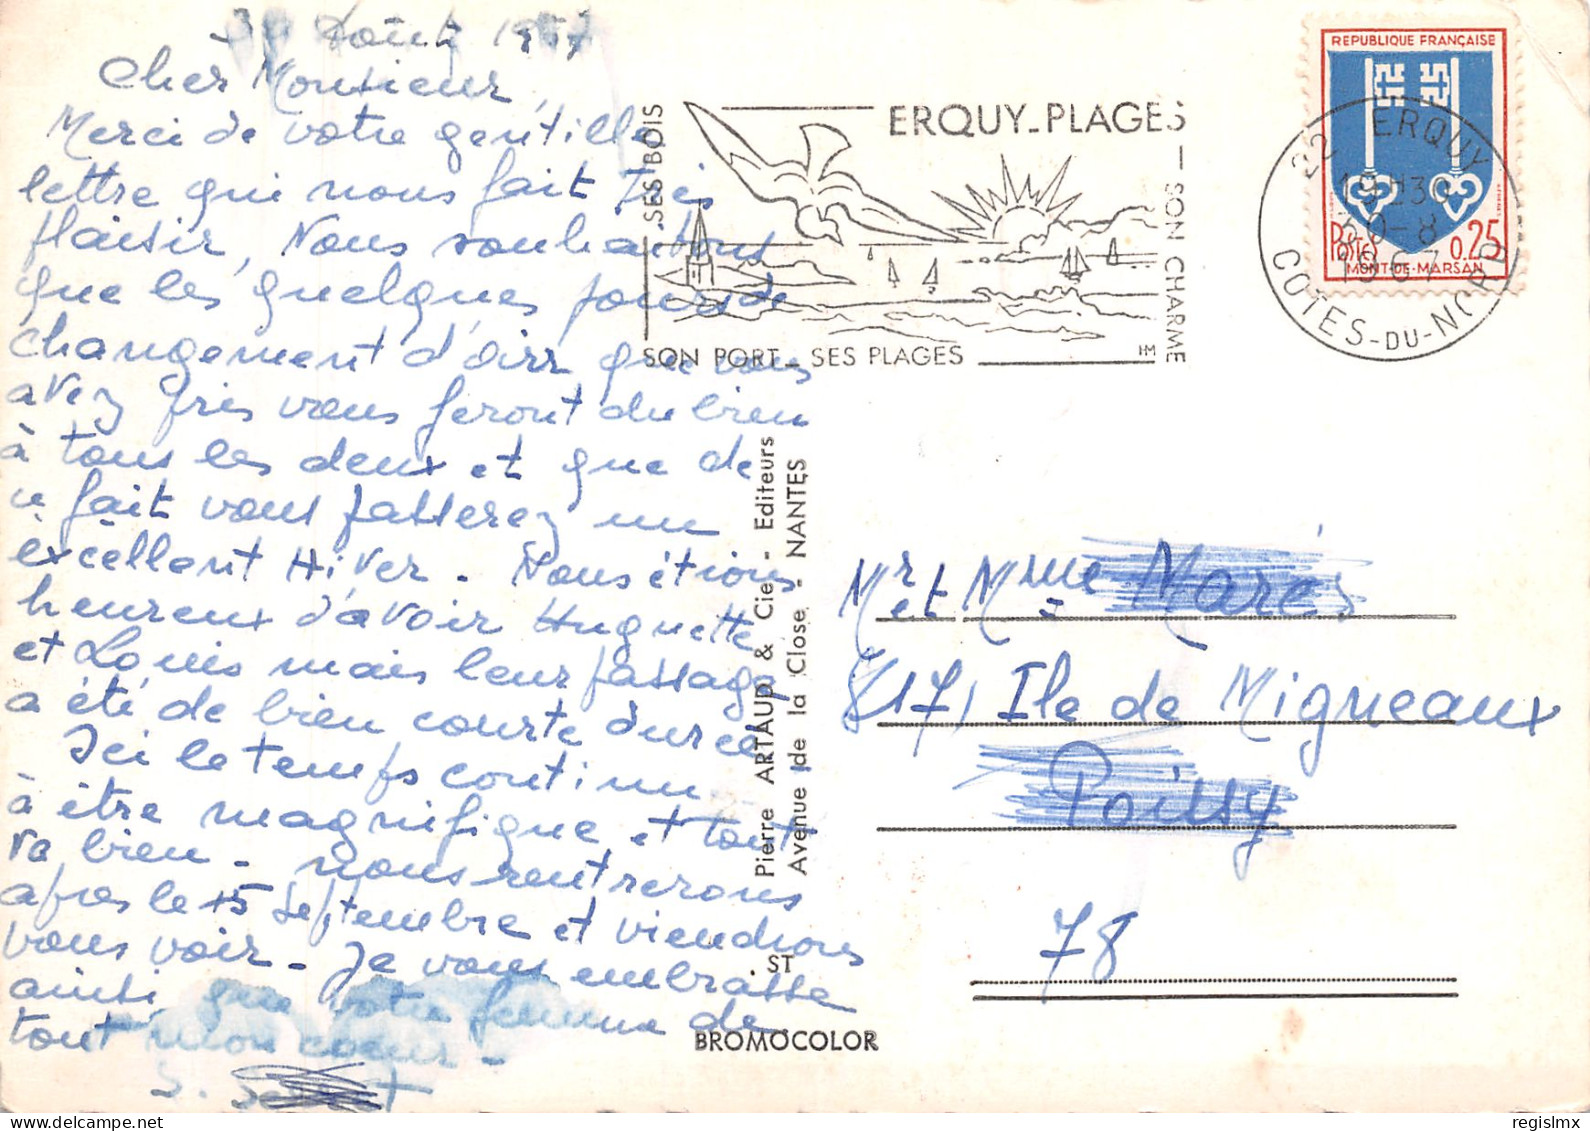 Août 1967
Cher Monsieur,
Merci de votre gentille
lettre qui nous fait très
plaisir, Nous souhaitons
que les quelques jours de
changement d'air que vous
avez pris vous feront du bien
à tous les deux et que de
ce fait vous passerez un
excellent Hiver - Nous étions
heureux d'avoir Huguette
et Louis mais leur passage
a été de bien courte durée
Ici le temps continu
à être magnifique et tout
va bien - nous rentrerons
après le 15 Septembre et viendrons
vous voir - Je vous embrasse
ainsi que votre femme de
tout mon coeur -
S.
ERQUY_PLAGES
SES BOIS
SON CHARME
SON PORT _ SES PLAGES
HM
REPUBLIQUE FRANÇAISE
POSTES 0.25
MONT-DE-MARSAN
22 ERQUY
19H30
30-8
1967
COTES-DU-NORD
Pierre ARTAUD & Cie - Editeurs
Avenue de la Close - NANTES
ST
BROMOCOLOR
Mr et Mme Marés
817, Ile de Migneaux
Poissy
78
regislmx